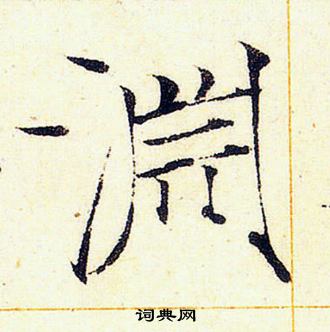 淵
词典网